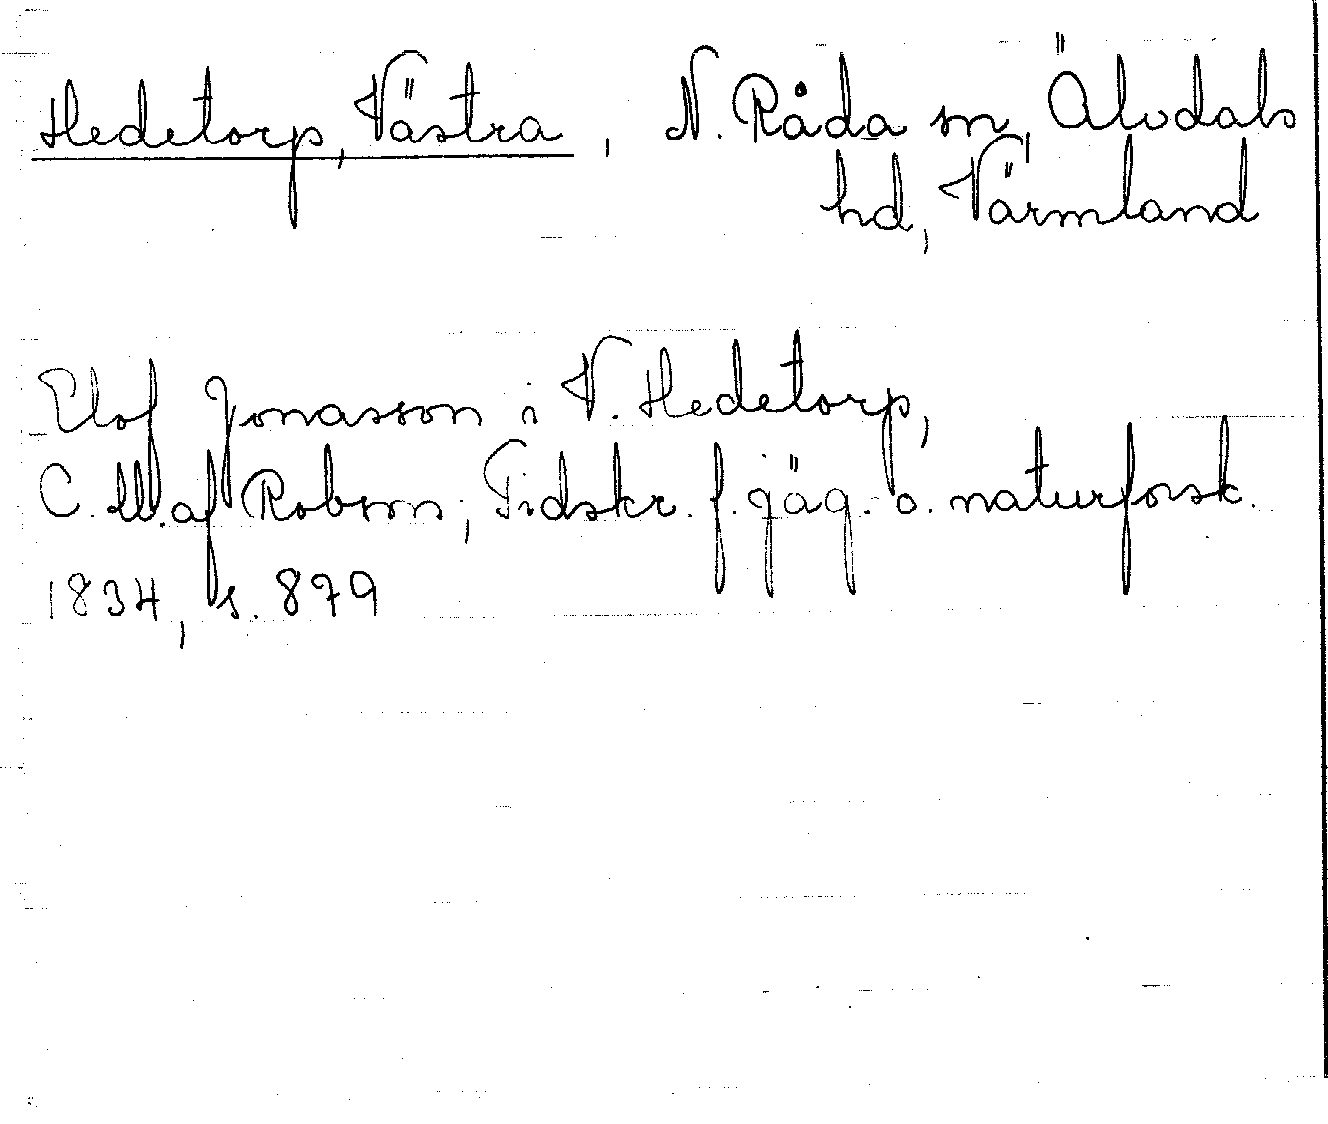 Hedetorp, Västra, N. Råda sn, Älvdals
hd, Värmland
Elof Jonasson i V. Hedetorp,
C. U. af Robson, Tidskr. f. jäg. o. naturforsk.
1834, s. 879